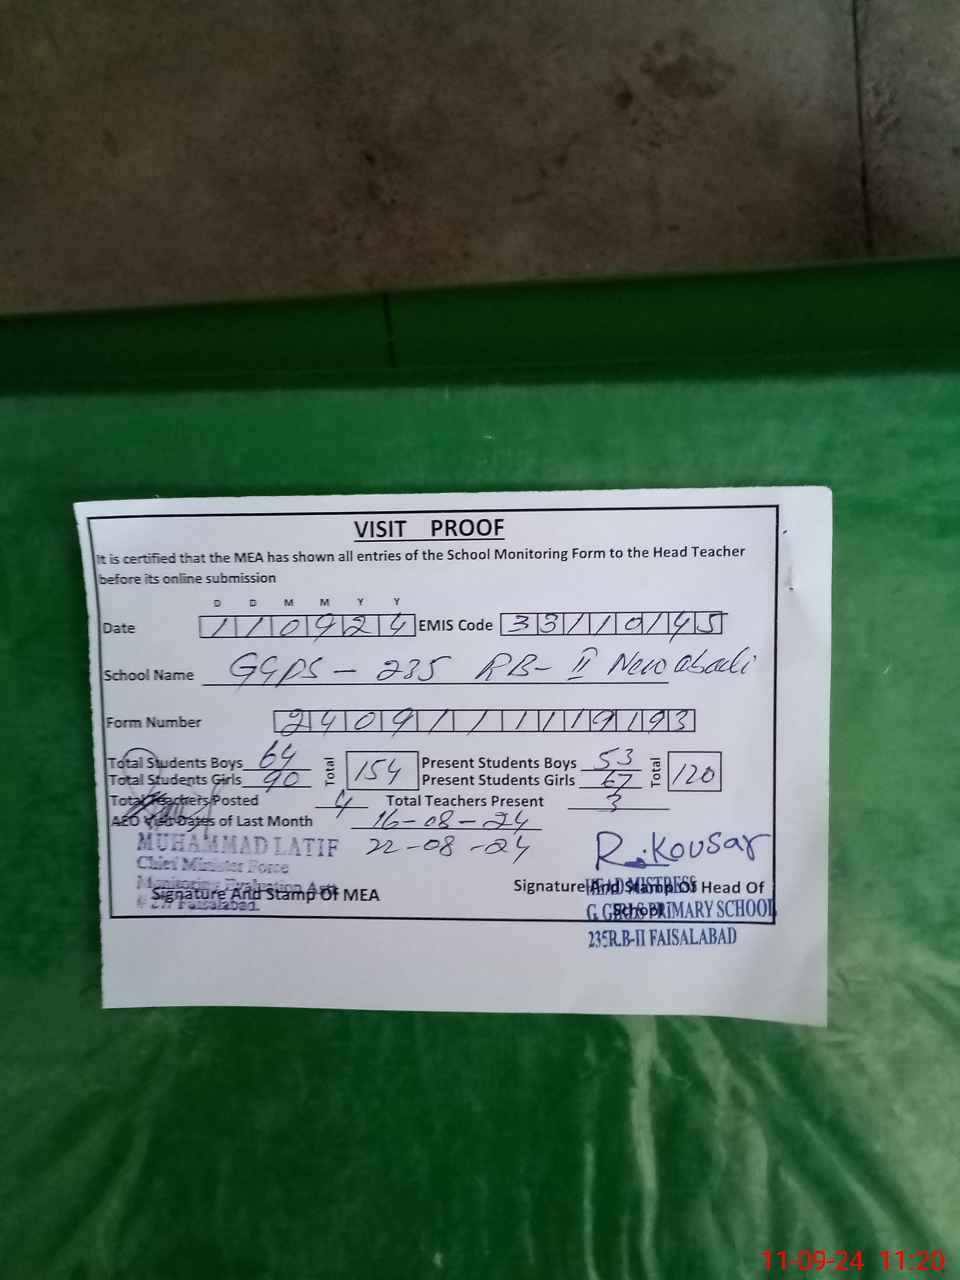 VISIT PROOF
It is certified that the MEA has shown all entries of the School Monitoring Form to the Head Teacher
before its online submission
D D M M Y Y
Date 110924 EMIS Code 33110145
School Name GGPS - 235 RB- II Newabadi
Form Number 2409111119193
Total Students Boys 64 Total 154 Present Students Boys 53 Total 120
Total Students Girls 90 Present Students Girls 67
Total Teachers Posted 4 Total Teachers Present 3
AEO Visit Dates of Last Month 16-08-24
22-08-24
MUHAMMAD LATIF
Chief Minister Force
Monitoring Evaluation
Faisalabad.
Signature And Stamp Of MEA
R.Kousar
Signature And Stamp Of Head Of
School
HEAD MISTRESS
G. GIRLS PRIMARY SCHOOL
235R.B-II FAISALABAD
11-09-24 11:20